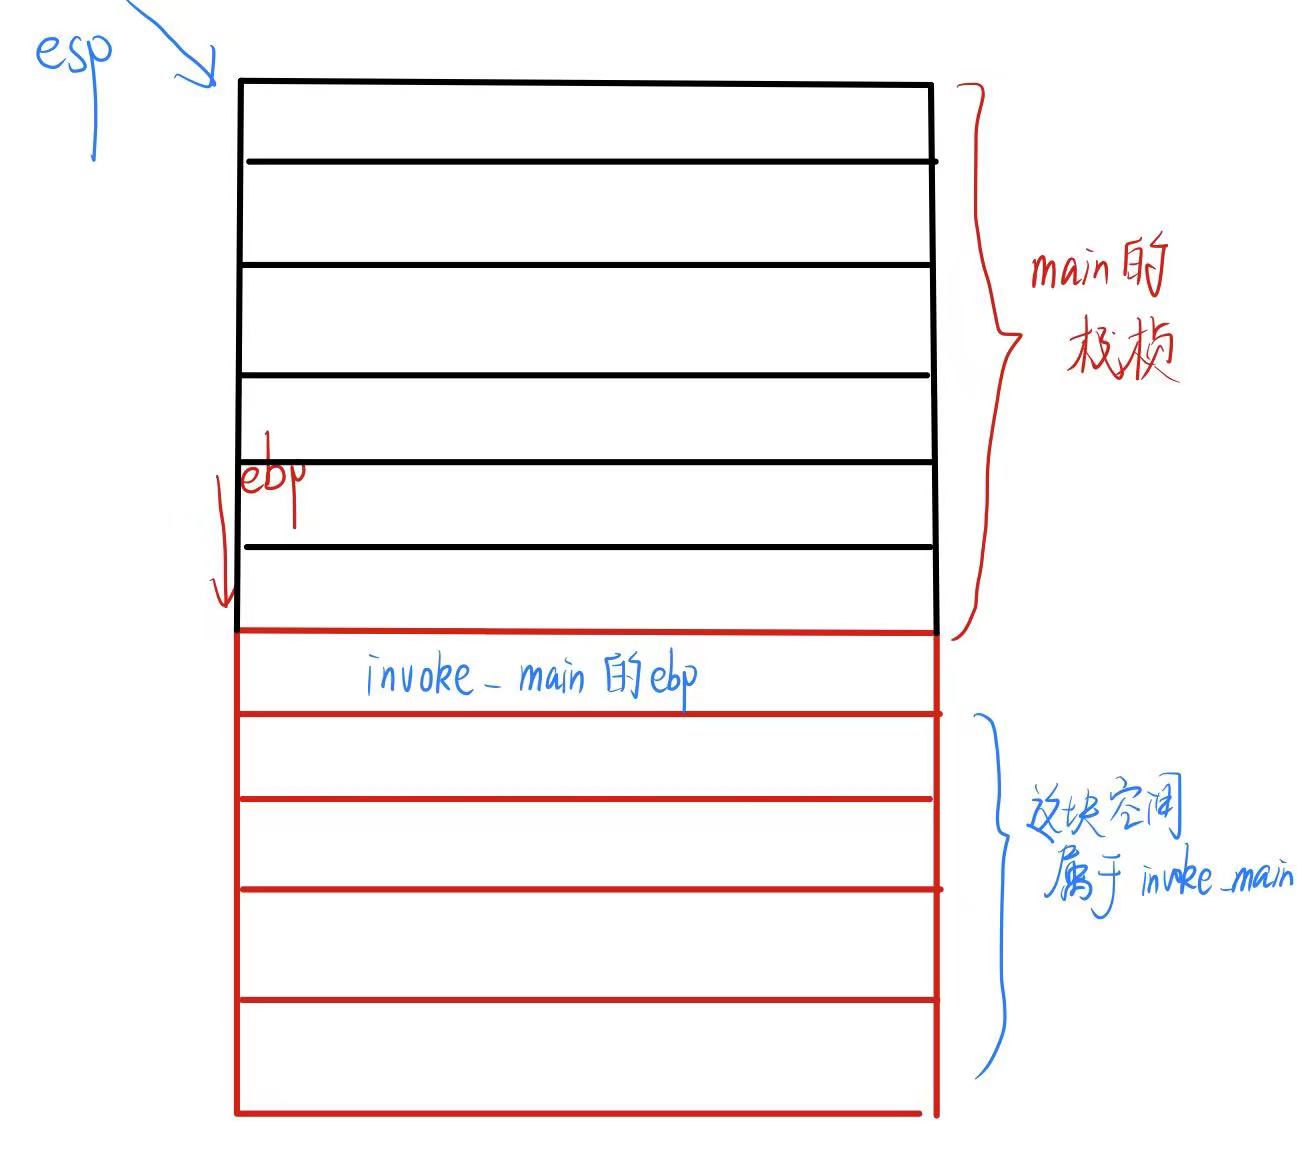 esp
main的
栈桢
ebp
invoke_main 的ebp
这块空间
属于 invoke_main